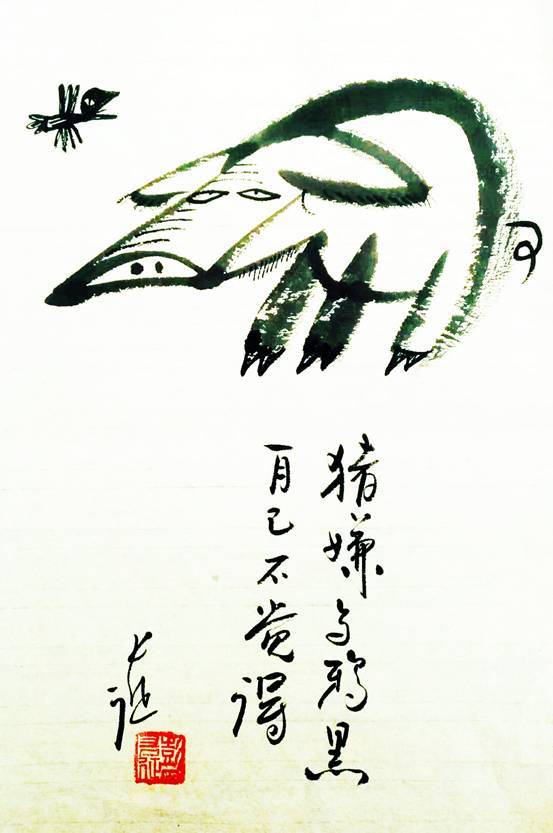 猪嫌乌鸦黑
自己不觉得